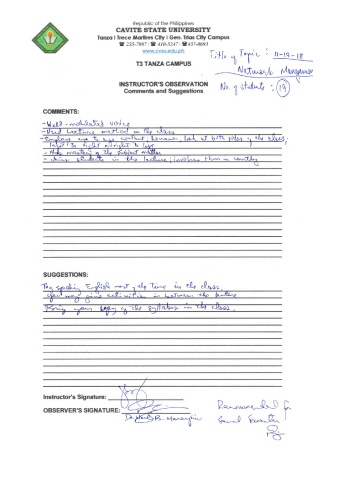 Republic of the Philippines
CAVITE STATE UNIVERSITY
Tanza | Trece Martires City | Gen. Trias City Campus
www.cvsu.edu.ph
T3 TANZA CAMPUS
INSTRUCTOR'S OBSERVATION
Comments and Suggestions
Title of Topic : 11-19-18
Network
No. of Students : 19
COMMENTS:
- Well-modulated voice
- Used Lecture method in the class
- eye to eye contact, however, look at both sides of the class,
left to right right to left
- of the subject matter
- students in the lecture; involves them in
SUGGESTIONS:
Try speaking English most of the time in the class.
You may give activities in between the lecture
Bring your copy of the syllabus in the class.
Instructor's Signature:
OBSERVER'S SIGNATURE:
Recommended for